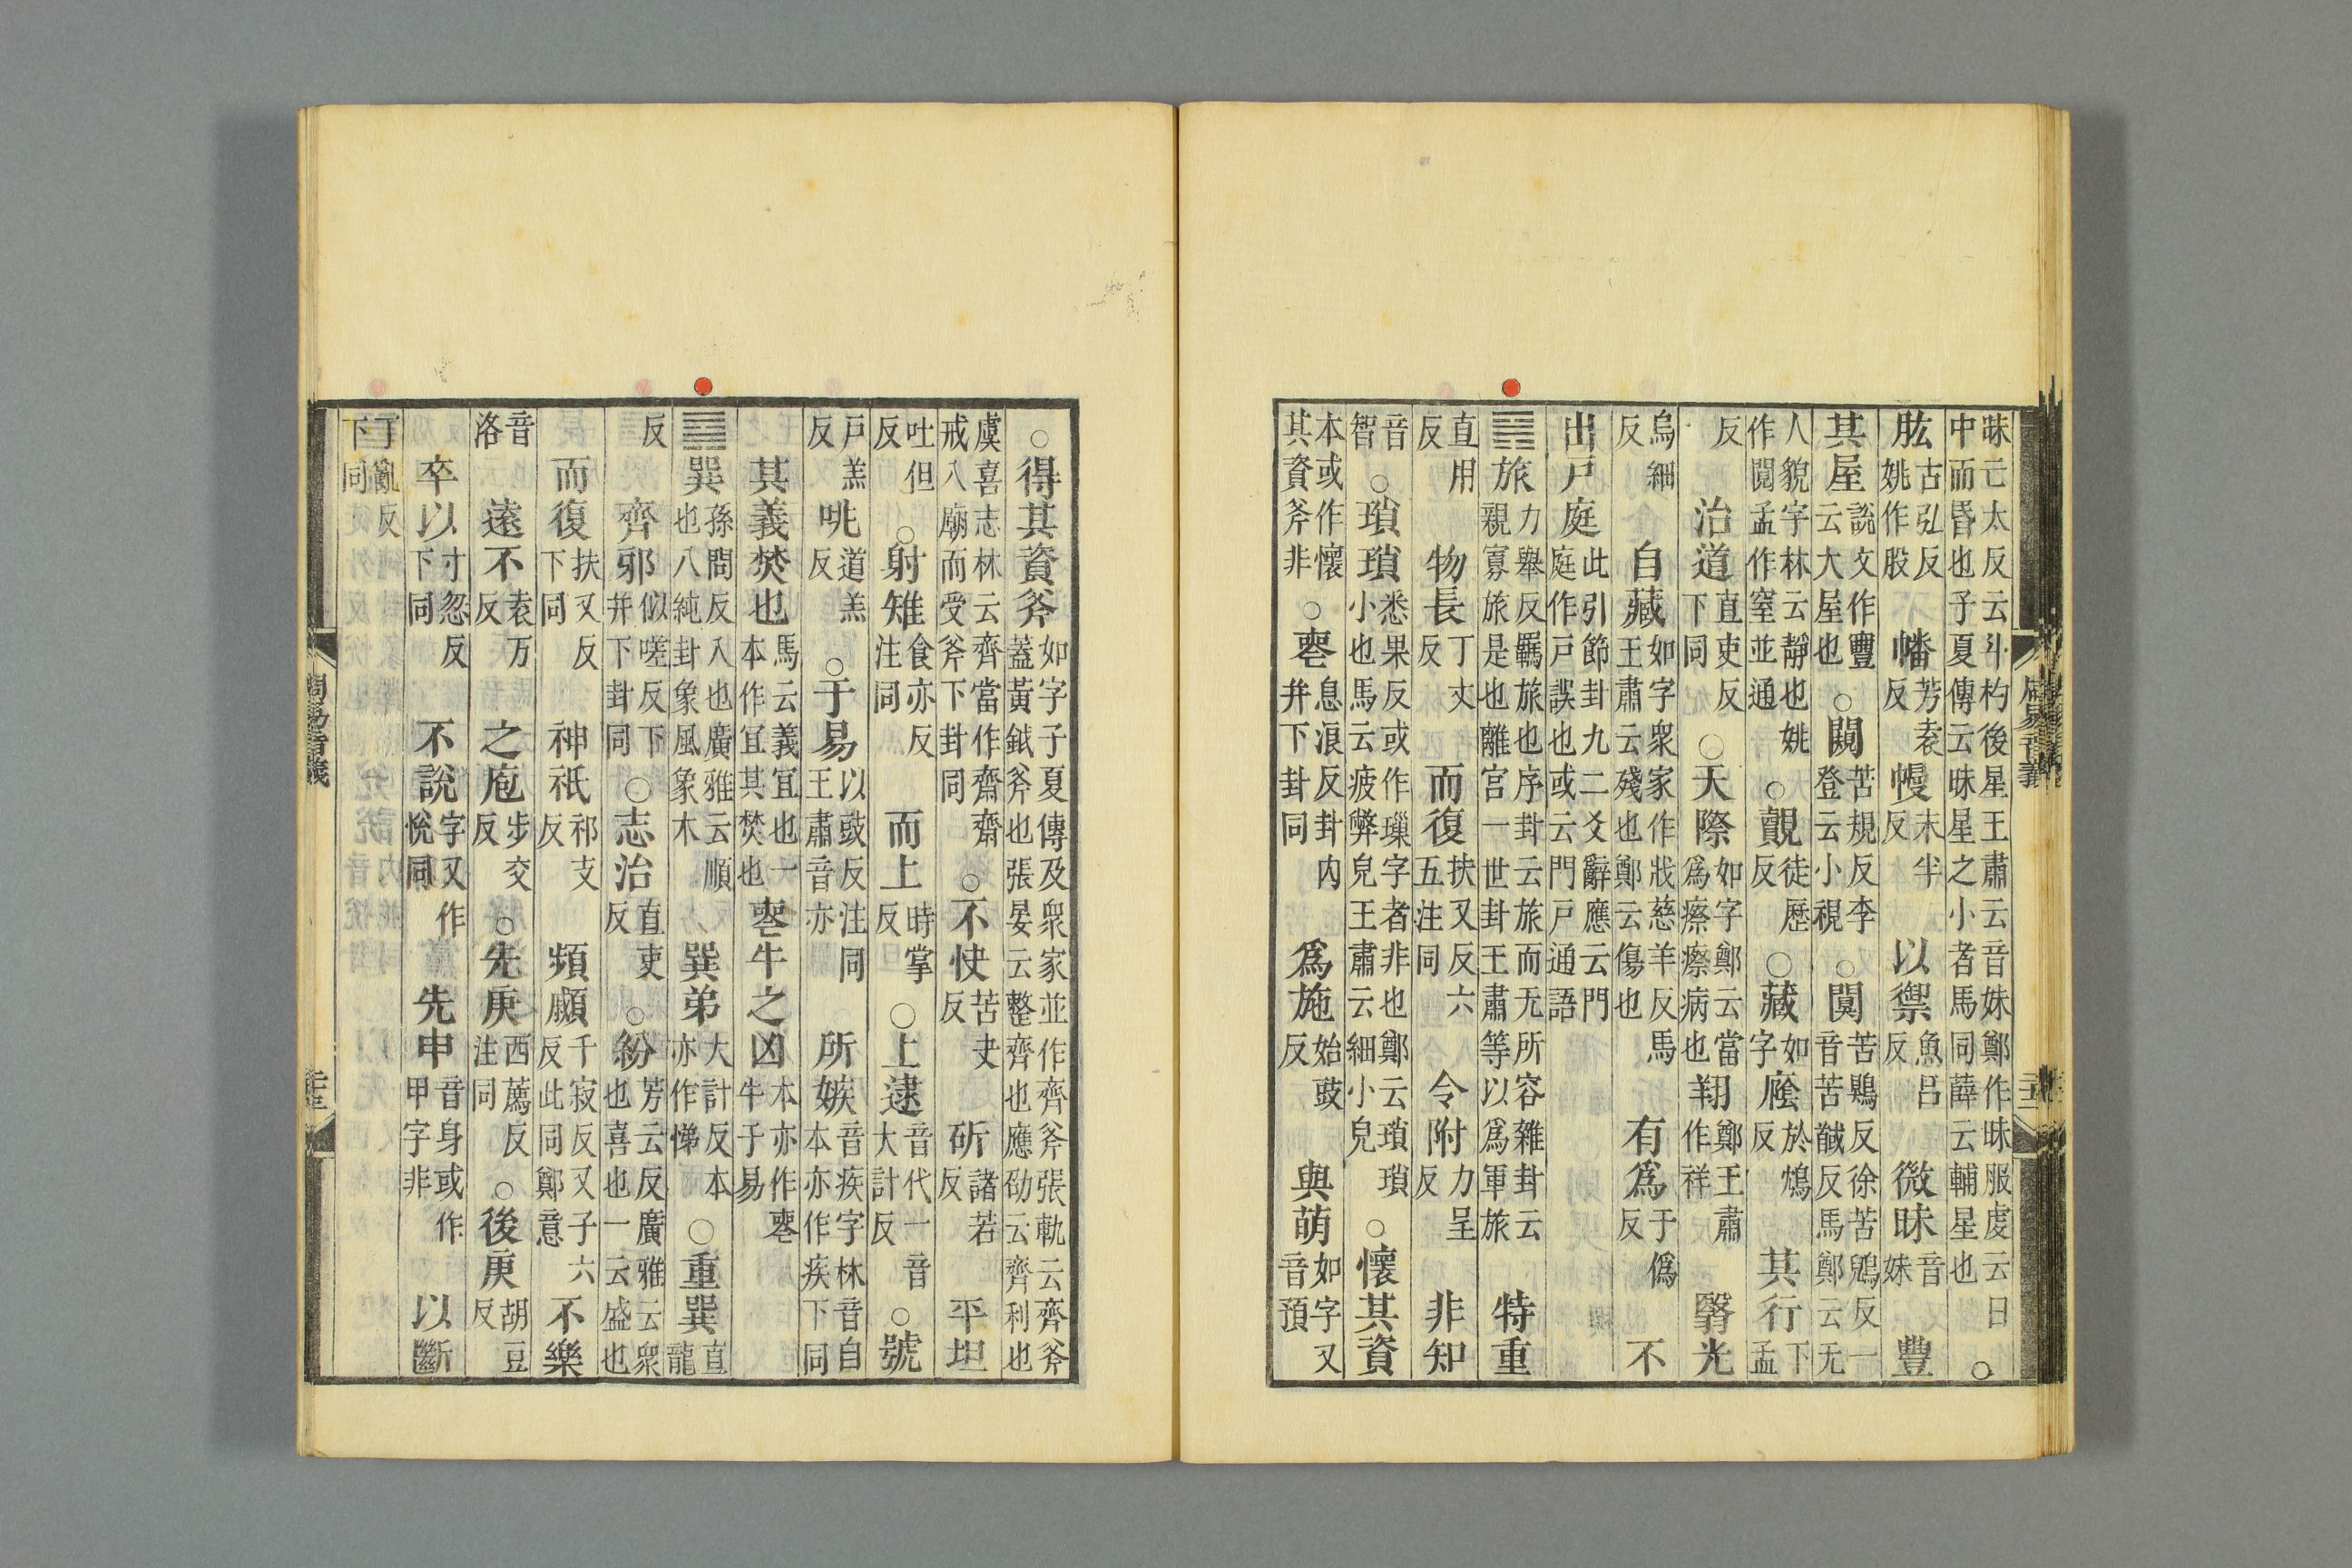 昧亡太反云斗杓後星王肅云音妹鄭作昧服䖍云日中而昏也子夏傳云昧星之小者馬同薛云輔星也○
肱古弘反姚作股 幡芳袁反 幔末半反 以禦魚呂反 微昧音妹 豐
其屋說文作寷云大屋也○闚苦規反李登云小視○闃苦鶪反徐苦鵙反一音苦馘反馬鄭云无
人貌字林云靜也姚作鬩孟作窒並通○覿徒歷反○藏如字 廕於鴆反 其行下孟
反 治道直吏反下同○天際如字鄭云當爲瘵瘵病也 翔鄭王肅作祥 翳光
烏細反 自藏如字衆家作戕慈羊反馬王肅云殘也鄭云傷也 有爲于僞反 不
出戶庭此引節卦九二爻辭應云門庭作戶誤也或云門戶通語
䷷旅力舉反羈旅也序卦云旅而无所容雜卦云親寡旅是也離宮一世卦王肅等以爲軍旅 特重
直用反 物長丁丈反 而復扶又反六五注同 令附力呈反 非知
音智○瑣瑣悉果反或作璅字者非也鄭云瑣瑣小也馬云疲弊皃王肅云細小皃○懷其資
本或作懷其資斧非○喪息浪反卦內并下卦同 爲施始豉反 與萌如字又音預
周易音義
○得其資斧如字子夏傳及衆家並作齊斧張軌云齊斧蓋黃鉞斧也張晏云整齊也應劭云齊利也
虞喜志林云齊當作齋齋戒入廟而受斧下卦同○不快苦夬反 斫諸若反 平坦
吐但反○射雉食亦反注同 而上時掌反○上逮音代一音大計反○號
戶羔反 咷道羔反○于易以豉反注同王肅音亦 所嫉音疾字林音自本亦作疾下同
其義焚也馬云義宜也一本作宜其焚也 喪牛之凶本亦作喪牛于易
䷸巽孫問反入也廣雅云順也八純卦象風象木 巽弟大計反本亦作悌○重巽直龍
反 齊邪似嗟反下并下卦同○志治直吏反○紛芳云反廣雅云衆也喜也一云盛也
而復扶又反下同 神祇祁支反 頻顣千寂反又子六反此同鄭意 不樂
音洛 遠不袁万反 之庖步交反○先庚西薦反注同○後庚胡豆反
卒以寸忽反下同 不說字又作悅同 先申音身或作甲字非 以斷
丁亂反下同
周易音義